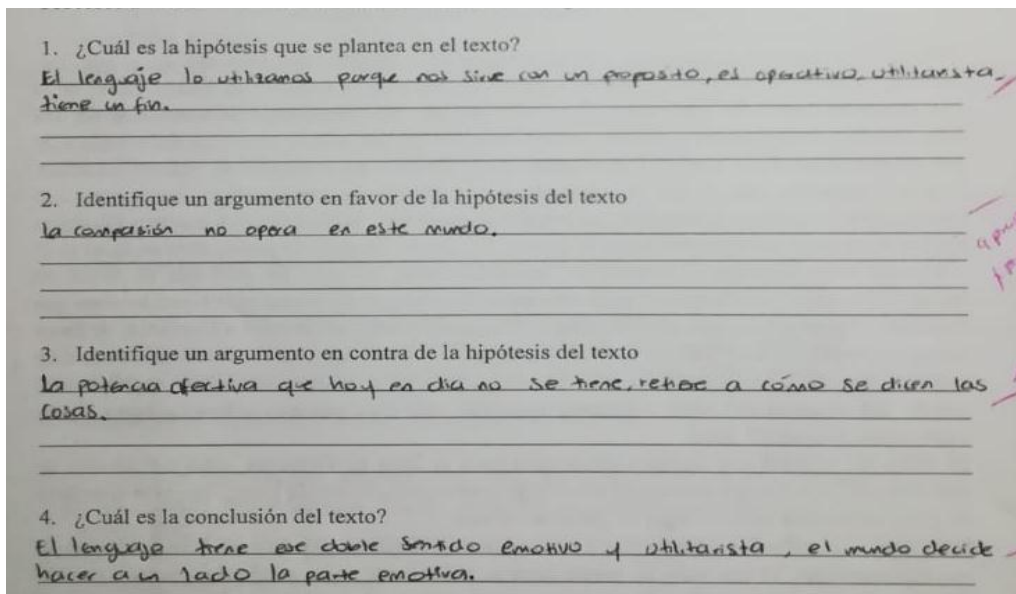 1. ¿Cuál es la hipótesis que se plantea en el texto?
El lenguaje lo utilizamos porque nos sirve con un proposito, es operativo, utilitarista,
tiene un fin.
2. Identifique un argumento en favor de la hipótesis del texto
la compasión no opera en este mundo.
3. Identifique un argumento en contra de la hipótesis del texto
La potencia afectiva que hoy en dia no se tiene, refiere a cómo se dicen las
cosas.
4. ¿Cuál es la conclusión del texto?
El lenguaje tiene ese doble sentido emotivo y utilitarista, el mundo decide
hacer a un lado la parte emotiva.